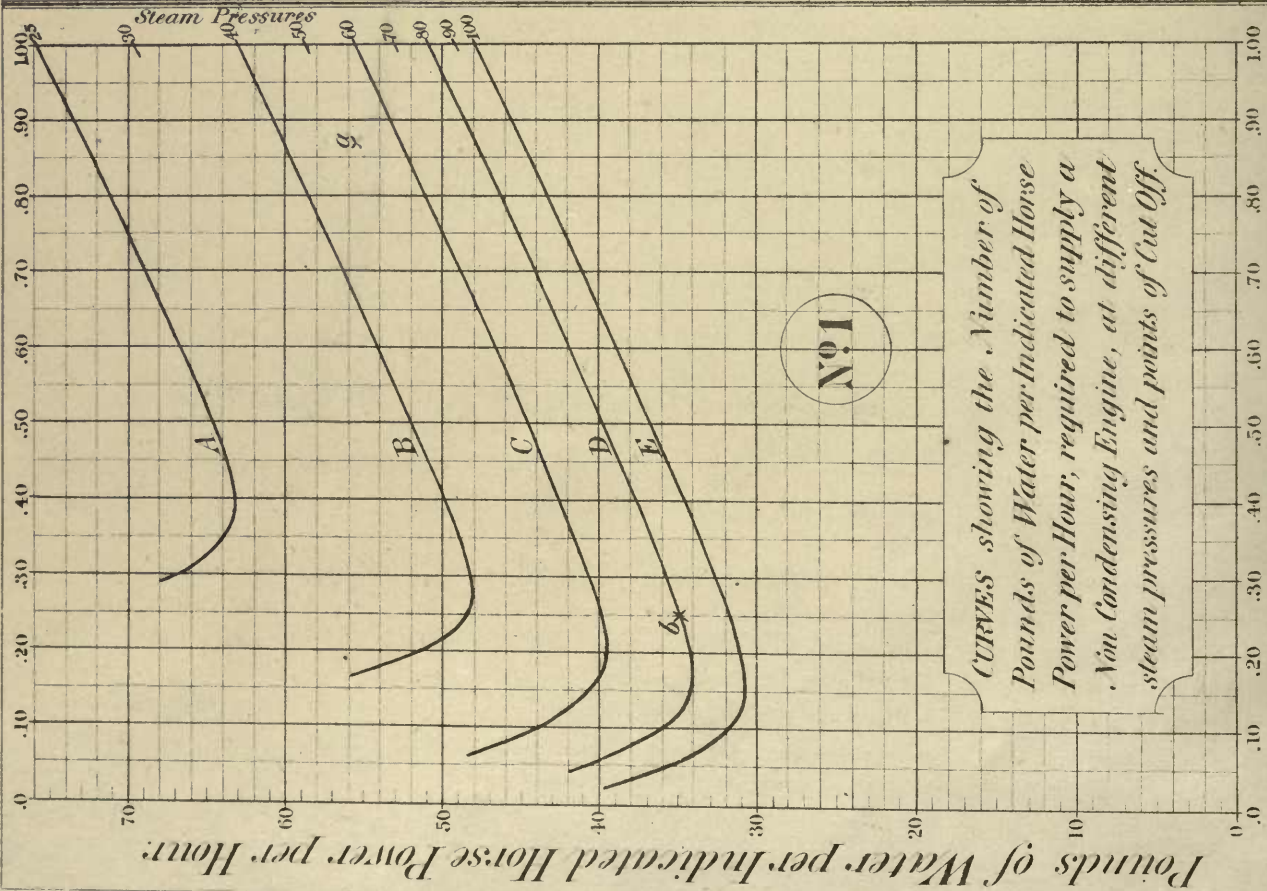 Steam Pressures
25 30 40 50 60 70 80 90 100
1.00
.90
.80
.70
.60
.50
.40
.30
.20
.10
.0
g
A
B
C
D
E
b
Nº. 1
CURVES showing the Number of
Pounds of Water per Indicated Horse
Power per Hour, required to supply a
Non Condensing Engine, at different
steam pressures and points of Cut Off.
1.00
.90
.80
.70
.60
.50
.40
.30
.20
.10
.0
70 60 50 40 30 20 10 0
Pounds of Water per Indicated Horse Power per Hour.